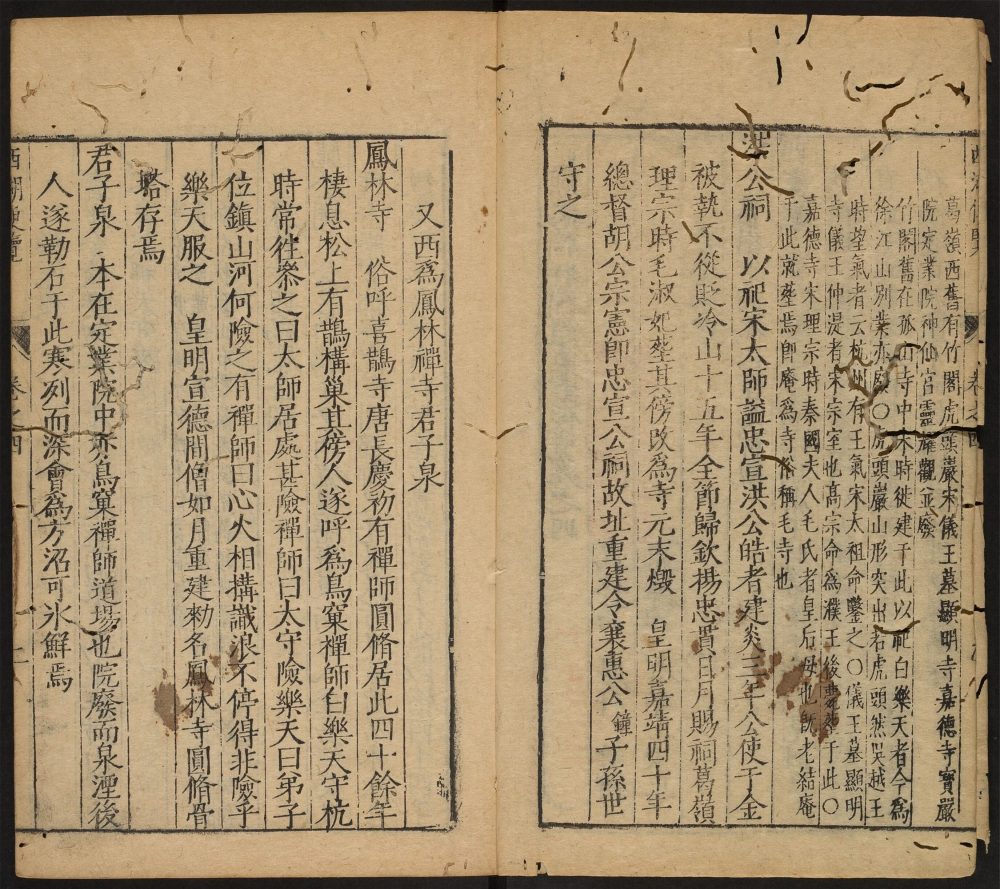 葛嶺西舊有竹閣虎頭巖宋儀王墓顯明寺嘉德寺寶嚴
院定業院神仙宮靈耀觀並廢
竹閣舊在孤山寺中宋時徙建于此以祀白樂天者今為
徐江山別業亦廢〇虎頭巖山形突出若虎頭然吳越王
時望氣者云杭州有王氣宋太祖命鑿之〇儀王墓顯明
寺儀王仲湜者宋宗室也高宗命為濮王後薨葬于此〇
嘉德寺宋理宗時秦國夫人毛氏者皇后母也既老結庵
于此就塟焉卽庵為寺俗稱毛寺也
洪公祠　以祀宋太師謚忠宣洪公皓者建炎三年公使于金
被執不從貶冷山十五年全節歸欽揚忠貫日月賜祠葛嶺
理宗時毛淑妃塟其傍改為寺元末燬　皇明嘉靖四十年
總督胡公宗憲卽忠宣公祠故址重建令襄惠公鐘子孫世
守之
西湖便覽　卷之四
又西爲鳳林禪寺君子泉
鳳林寺　俗呼喜鵲寺唐長慶初有禪師圓脩居此四十餘年
棲息松上有鵲構巢其傍人遂呼爲鳥窠禪師白樂天守杭
時常徃叅之曰太師居處甚險禪師曰太守險樂天曰弟子
位鎮山河何險之有禪師曰心火相搆識浪不停得非險乎
樂天服之　皇明宣德間僧如月重建勑名鳳林寺圓脩骨
塔存焉
君子泉　本在定業院中亦鳥窠禪師道場也院廢而泉湮後
人遂勒石于此寒列而深會爲方沼可氷鮮焉
西湖便覽　卷之四